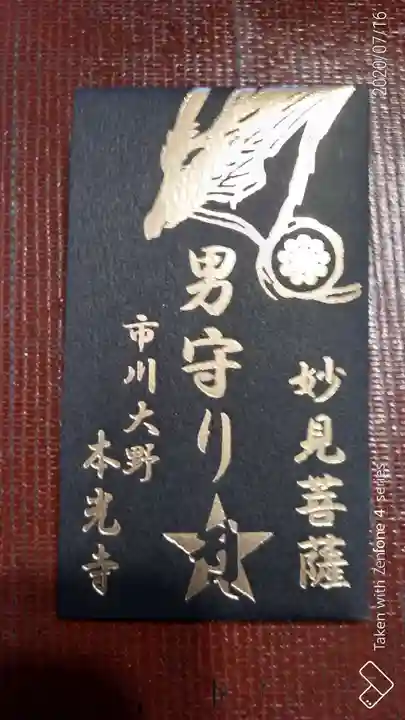 妙見菩薩
男守り
市川大野
本光寺
2020/07/16
Taken with Zenfone 4 series